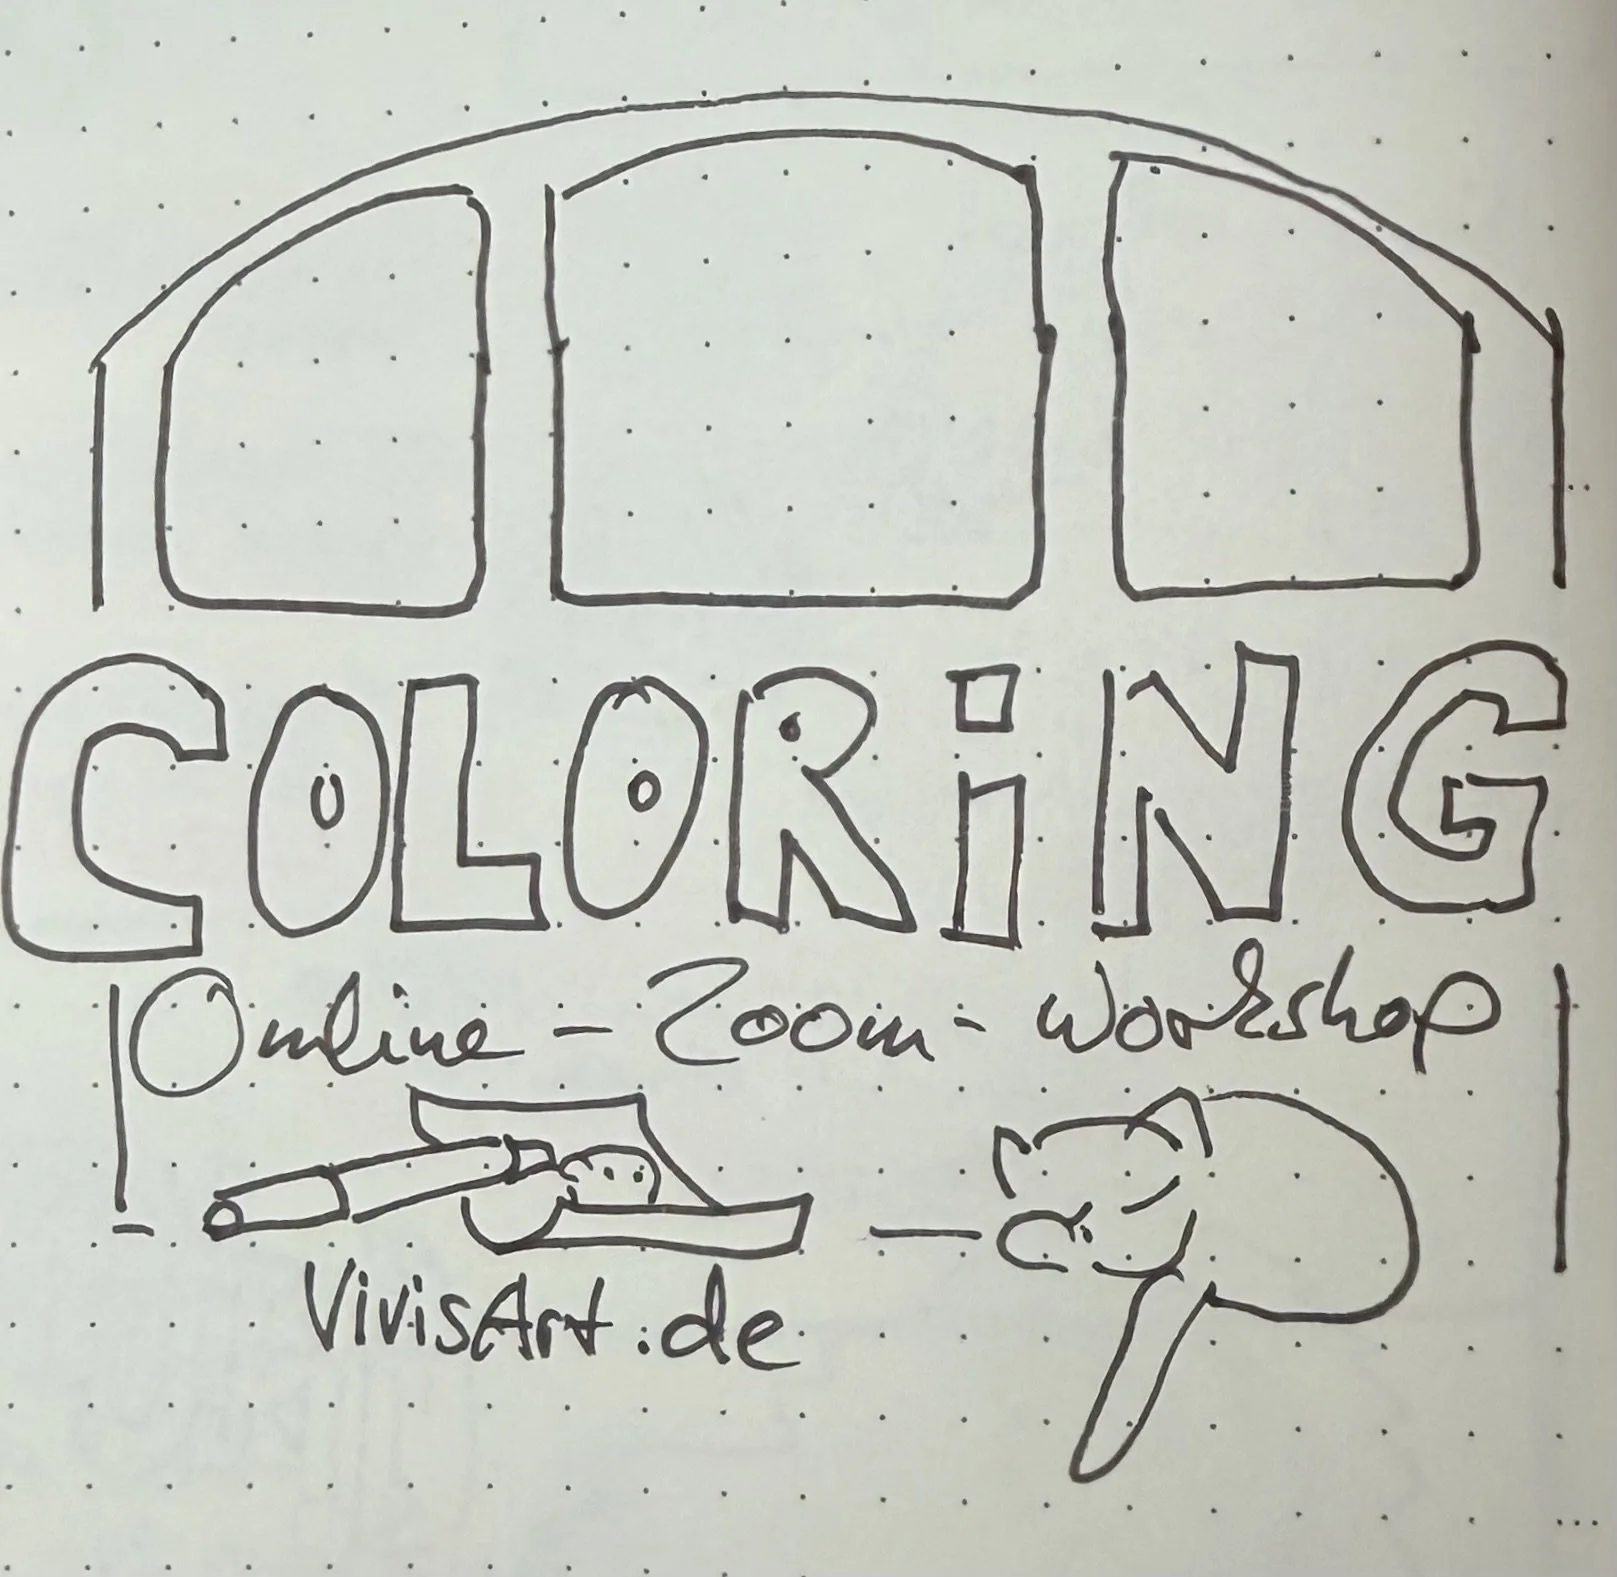 COLORiNG
Online - Zoom - Workshop
VivisArt.de